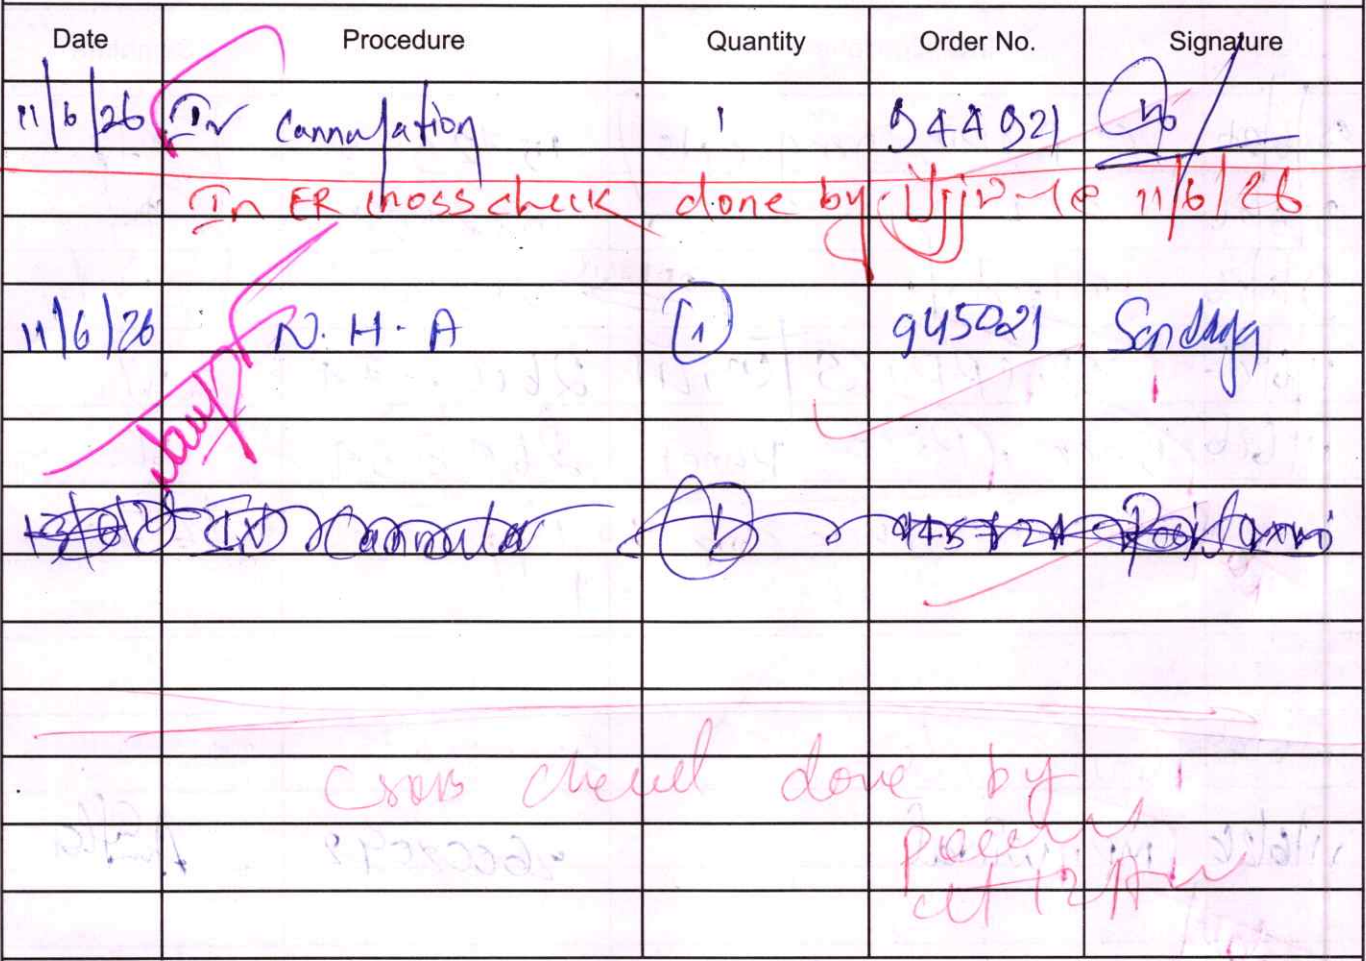 Date Procedure Quantity Order No. Signature
11/6/26 IV Cannulation 1 944921
In ER cross check done by 11/6/26
11/6/26 N.H.A 1 945021 Sandhya
IV Cannula 1
cross check done by
at 12 AM